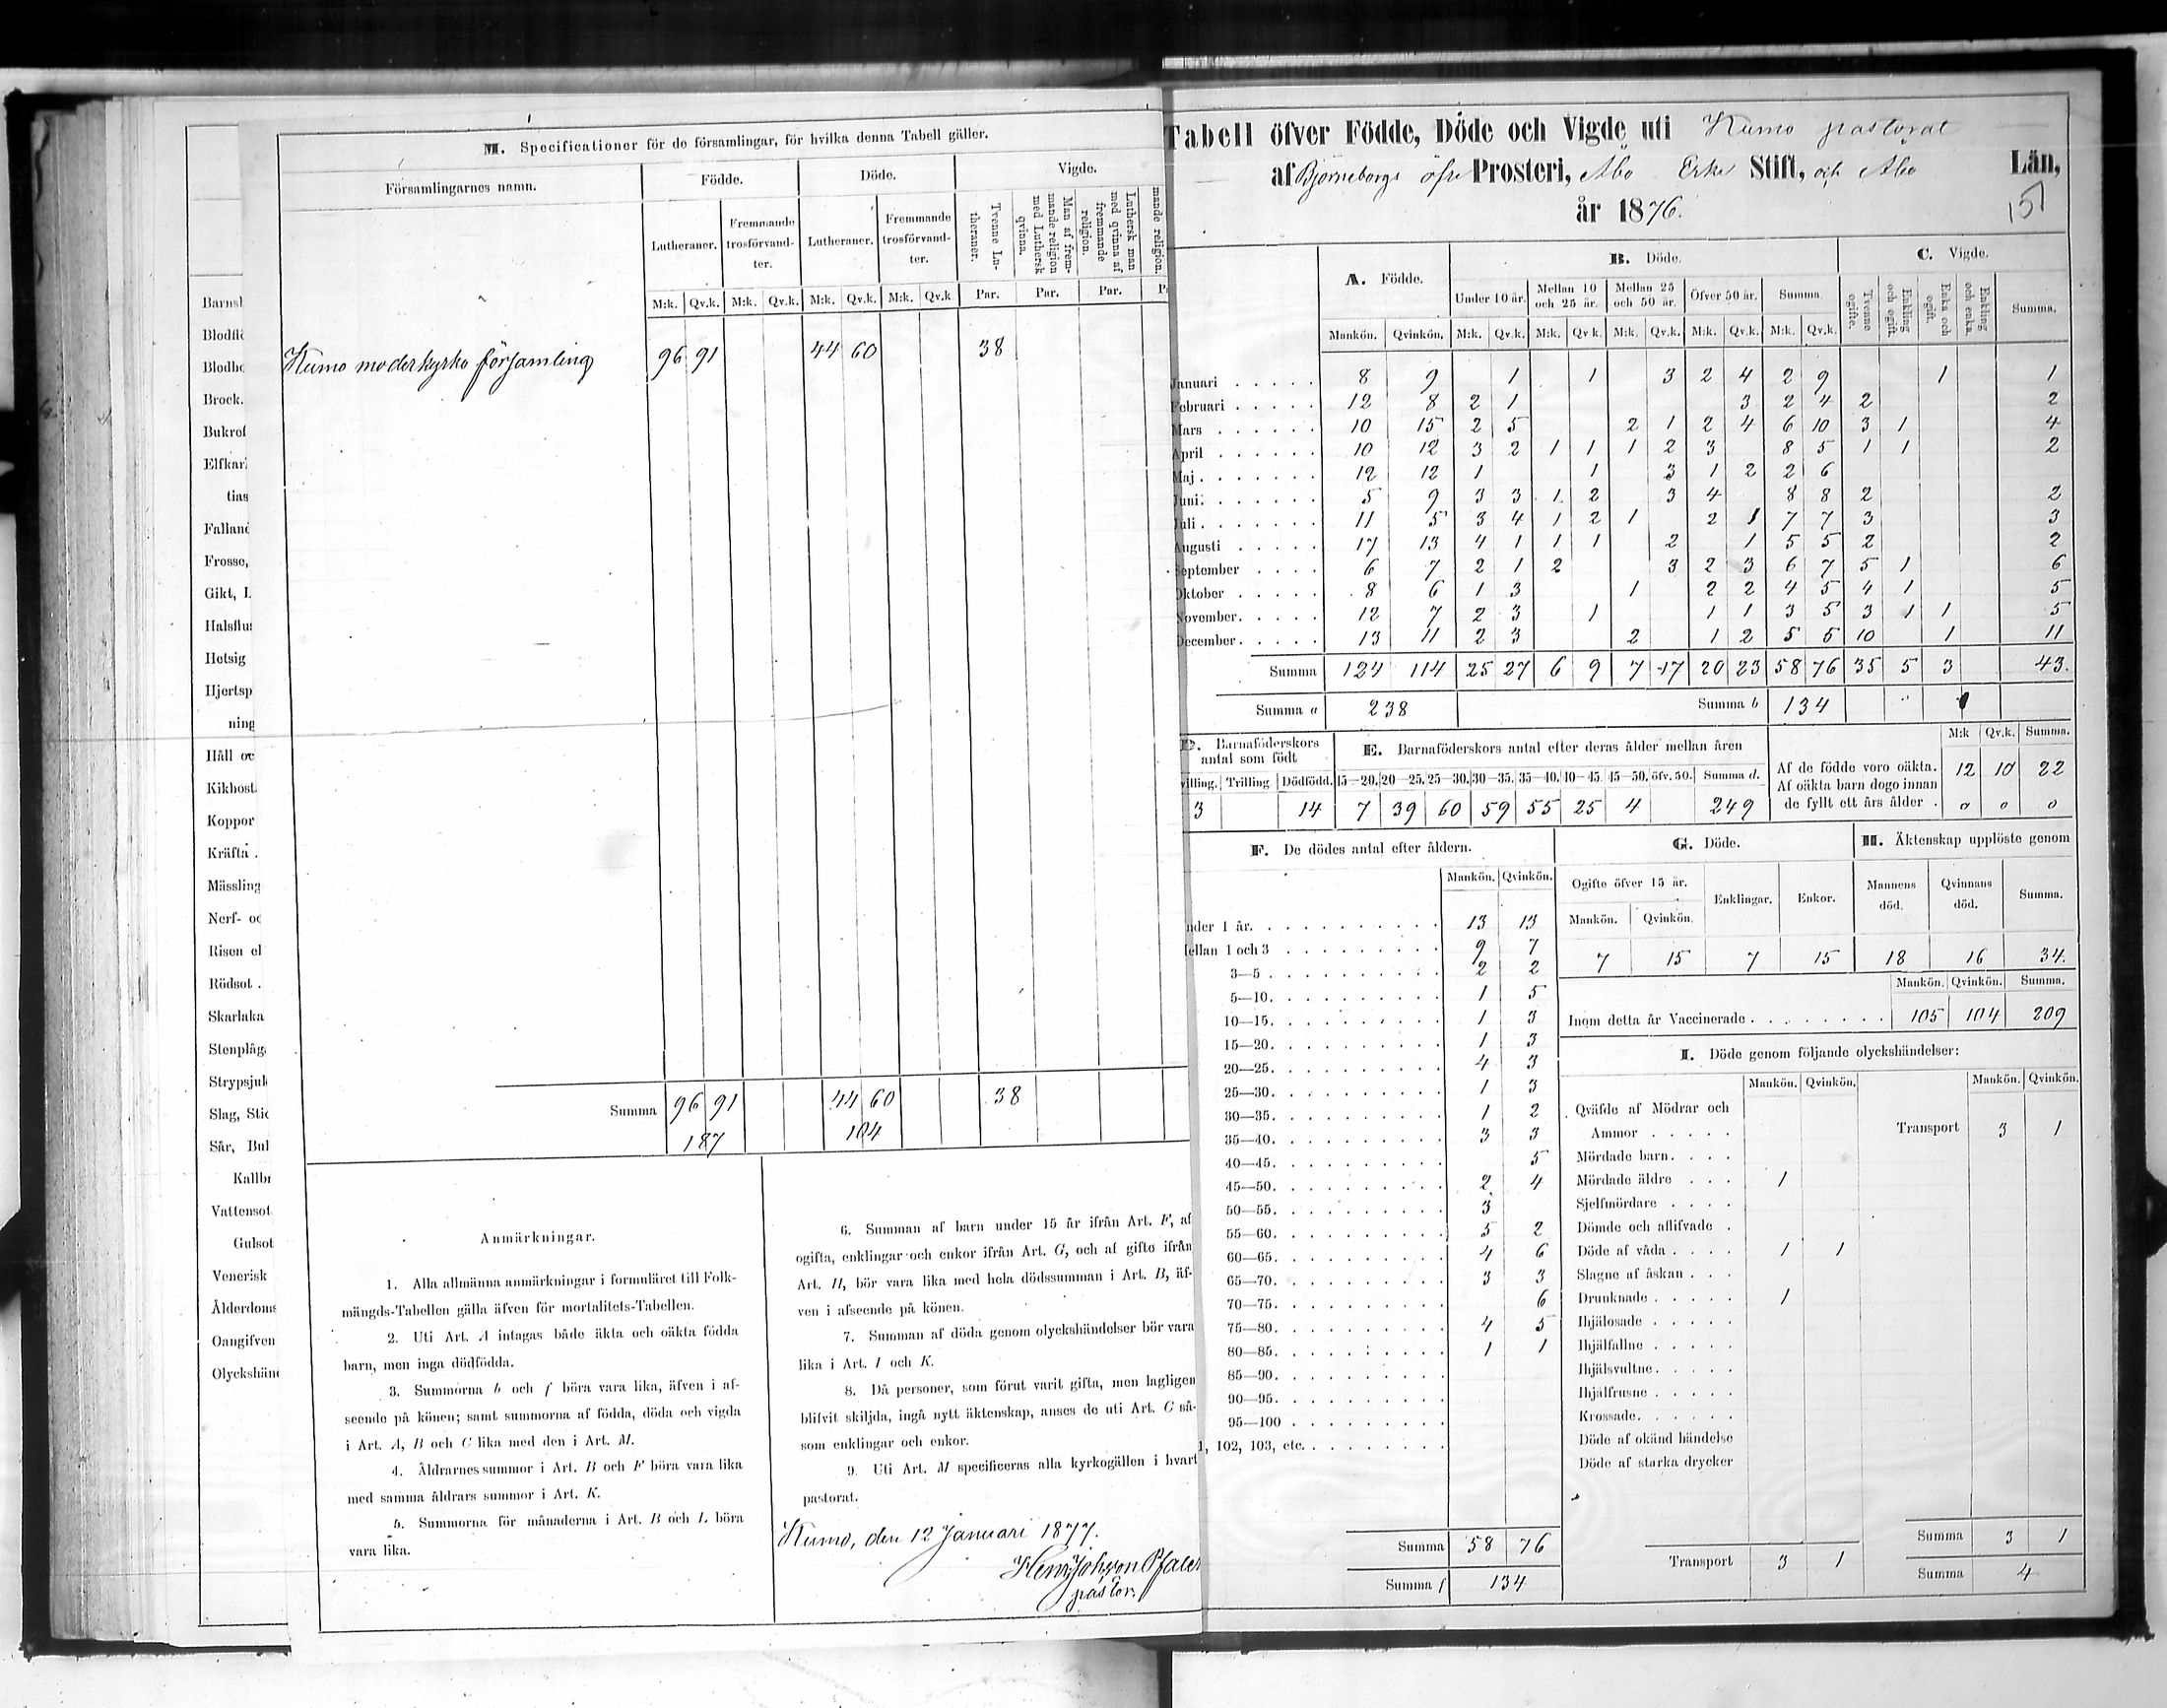 M. Specificationer för de församlingar, för hvilka denna Tabell gäller.
Församlingarnes namn. Födde. Döde. Vigde.
Lutheraner. Fremmande trosförvandter. Lutheraner. Fremmande trosförvandter. Tvenne Lutheraner. Man af fremmande religion med Luthersk qvinna. Luthersk man med qvinna af fremmande religion. mande religion.
M:k. Qv.k. M:k. Qv.k. M:k. Qv.k. M:k. Qv.k Par. Par. Par.
Kumo moderkyrko församling 96 91 44 60 38
Summa 96 91 44 60 38
187 104
Barnsl
Blodflö
Blodho
Brock.
Bukref
Elfkar
tias
Falland
Frosse,
Gikt, L
Halsflus
Hetsig
Hjertsp
ning
Håll oc
Kikhost
Koppor
Kräfta .
Mässling
Nerf- oc
Risen el
Rödsot .
Skarlaka
Stenplåg
Strypsjuk
Slag, Stic
Sår, Bul
Kallbr
Vattensot
Gulsot
Venerisk
Ålderdoms
Oangifven
Olyckshänd
Anmärkningar.
1. Alla allmänna anmärkningar i formuläret till Folk-
mängds-Tabellen gälla äfven för mortalitets-Tabellen.
2. Uti Art. A intagas både äkta och oäkta födda
barn, men inga dödfödda.
3. Summorna b och f böra vara lika, äfven i af-
seende på könen; samt summorna af födda, döda och vigda
i Art. A, B och C lika med den i Art. M.
4. Åldrarnes summor i Art. B och F böra vara lika
med samma åldrars summor i Art. K.
5. Summorna för månaderna i Art. B och L böra
vara lika.
6. Summan af barn under 15 år ifrån Art. F, af
ogifta, enklingar och enkor ifrån Art. G, och af gifta ifrån
Art. H, bör vara lika med hela dödssumman i Art. B, äf-
ven i afseende på könen.
7. Summan af döda genom olyckshändelser bör vara
lika i Art. I och K.
8. Då personer, som förut varit gifta, men lagligen
blifvit skiljda, ingå nytt äktenskap, anses de uti Art. C så-
som enklingar och enkor.
9. Uti Art. M specificeras alla kyrkogällen i hvart
pastorat.
Kumo, den 12 Januari 1877.
Henr. Johsson Pfaler
pastor.
Tabell öfver Födde, Döde och Vigde uti Kumo pastorat
af Björneborgs öfre Prosteri, Åbo Erke Stift, och Åbo Län,
år 1876.
151
A. Födde. B. Döde. C. Vigde.
Under 10 år. Mellan 10 och 25 år. Mellan 25 och 50 år. Öfver 50 år. Summa. Tvenne ogifte. Enkling och ogift. Enka och ogift. Enkling och enka. Summa.
Mankön. Qvinkön. M:k. Qv.k. M:k. Qv.k. M:k. Qv.k. M:k. Qv.k. M:k. Qv.k.
Januari 8 9 1 1 3 2 4 2 9 1 1
Februari 12 8 2 1 3 2 4 2 2
Mars 10 15 2 5 2 1 2 4 6 10 3 1 4
April 10 12 3 2 1 1 1 2 3 8 5 1 1 2
Maj 12 12 1 1 3 1 2 2 6
Juni 5 9 3 3 1 2 3 4 8 8 2 2
Juli 11 5 3 4 1 2 1 2 1 7 7 3 3
Augusti 17 13 4 1 1 1 2 1 5 5 2 2
September 6 7 2 1 2 3 2 3 6 7 5 1 6
Oktober 8 6 1 3 1 2 2 4 5 4 1 5
November 12 7 2 3 1 1 1 3 5 3 1 1 5
December 13 11 2 3 2 1 2 5 5 10 1 11
Summa 124 114 25 27 6 9 7 17 20 23 58 76 35 5 3 43.
Summa a 238 Summa b 134
D. Barnaföderskors antal som födt
villing. Trilling Dödfödd.
3 14
E. Barnaföderskors antal efter deras ålder mellan åren
15—20. 20—25. 25—30. 30—35. 35—40. 40—45. 45—50. öfv. 50. Summa d.
7 39 60 59 55 25 4 249
M:k Qv.k. Summa.
Af de födde voro oäkta. 12 10 22
Af oäkta barn dogo innan
de fyllt ett års ålder . 0 0 0
F. De dödes antal efter åldern.
Mankön. Qvinkön.
nder 1 år. 13 13
ellan 1 och 3 9 7
3—5 2 2
5—10. 1 5
10—15. 1 3
15—20. 1 3
20—25. 4 3
25—30. 1 3
30—35. 1 2
35—40. 3 3
40—45. 5
45—50. 2 4
50—55. 3
55—60. 5 2
60—65. 4 6
65—70. 3 3
70—75. 6
75—80. 4 5
80—85. 1 1
85—90.
90—95.
95—100
1, 102, 103, etc.
Summa 58 76
Summa f 134
G. Döde.
Ogifte öfver 15 år. Enklingar. Enkor.
Mankön. Qvinkön.
7 15 7 15
H. Äktenskap upplöste genom
Mannens död. Qvinnans död. Summa.
18 16 34.
Mankön. Qvinkön. Summa.
Inom detta år Vaccinerade 105 104 209
I. Döde genom följande olyckshändelser:
Mankön. Qvinkön. Mankön. Qvinkön.
Qväfde af Mödrar och
Ammor Transport 3 1
Mördade barn.
Mördade äldre 1
Sjelfmördare
Dömde och aflifvade
Döde af våda 1 1
Slagne af åskan
Drunknade 1
Ihjälosade
Ihjälfallne
Ihjälsvultne
Ihjälfrusne
Krossade
Döde af okänd händelse
Döde af starka drycker
Summa 3 1
Transport 3 1
Summa 4